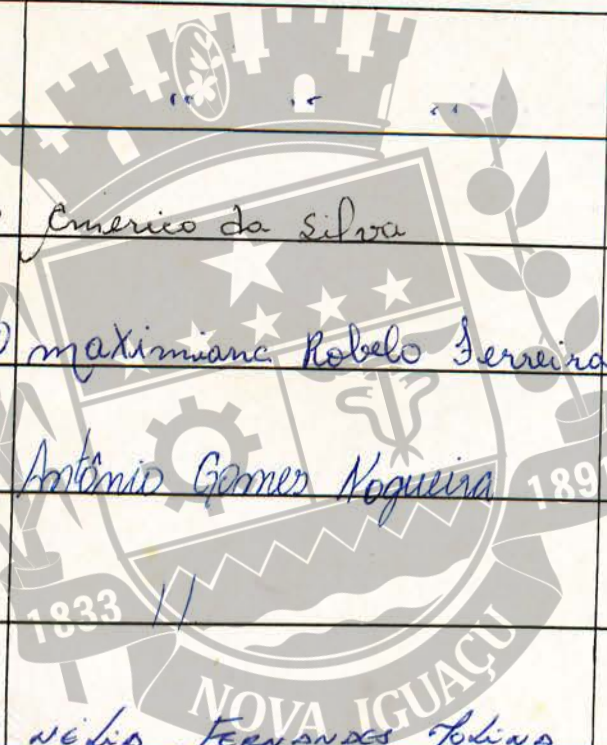 " " "
Emerico da Silva
maximiana Robelo Ferreira
Antônio Gomes Nogueira
1891
1833
//
NOVA IGUAÇU
NÉLIO FERNANDES